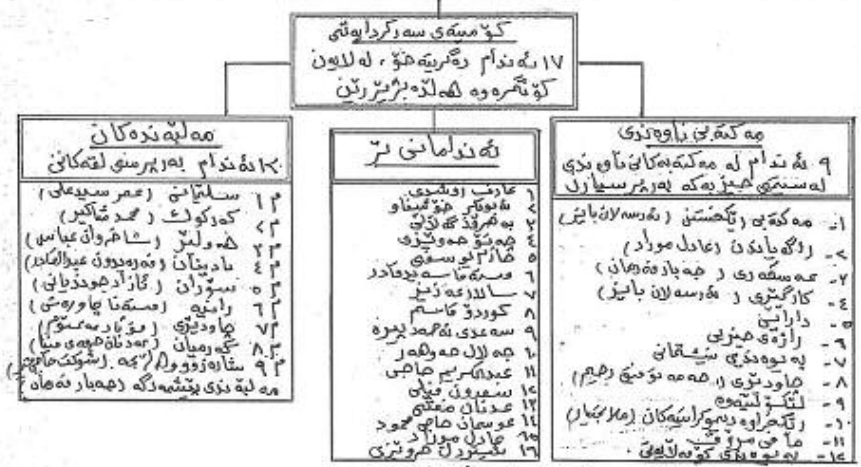 کۆمیتەی سەرکردایەتی
١٧ ئەندام دەگرێتە خۆ، لەلایەن
کۆنگرەوە هەڵدەبژێررێن
مەکتەبی ناوەندی
٩ ئەندام لە مەکتەبەکانی ناوەندی
لەسەتی حیزبەکە بەرپرسیارن
١- مەکتەبی ڕێکخستن (ئەرسەلان بایز)
٢- ڕاگەیاندن (عادل موراد)
٣- عەسکەری (جەبار فەرمان)
٤- کارگێڕی (ئەرسەلان بایز)
٥- دارایی
٦- ڕازەی حیزبی
٧- پەیوەندی نیشتمانی
٨- چاودێری (حەمە تۆفیق ڕەحیم)
٩- لێکۆڵینەوە
١٠- ڕێکخراوە دیموکراتیەکان (مەلا بختیار)
١١- مافی مرۆڤ
١٢- پەیوەندی کۆمەڵایەتی
ئەندامانی تر
١ عارف ڕوشدی
٢ ئەبوبکر خۆشناو
٣ بەهرۆز گەڵاڵی
٤ حەمۆ حەوێزی
٥ حازم یوسفی
٦ قاسم بەقادر
٧ سالار عەزیز
٨ کوردۆ قاسم
٩ سەعدی ئەحمەد پیرە
١٠ جەلال جەوهەر
١١ عبدالکریم حاجی
١٢ سەعدون فەیلی
١٣ عدنان موفتی
١٤ عوسمان حاجی محمود
١٥ عادل موراد
١٦ شێردڵ حەوێزی
مەڵبەندەکان
١٢ ئەندام بەرپرسی لقەکانی
م ١ سلێمانی (عمر سیدعلی)
م ٢ کەرکوک (محمد شاکیر)
م ٣ هەولێر (شاخەوان عباس)
م ٤ بادینان (فەرەیدون عبدالقادر)
م ٥ سۆران (ئازاد جوندیانی)
م ٦ ڕانیە (مستەفا چاوڕەش)
م ٧ چاودێری
م ٨ گەرمیان (عەدنان حەمەی مینا)
م ٩ شارەزوور/هەڵەبجە (شەوکەت حاجی مشیر)
مەڵبەندی پێشمەرگە (جەبار فەرمان)